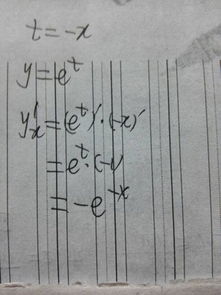 t=-x
y=e^t
y'_x=(e^t)'·(-x)'
=e^t·(-1)
=-e^{-x}